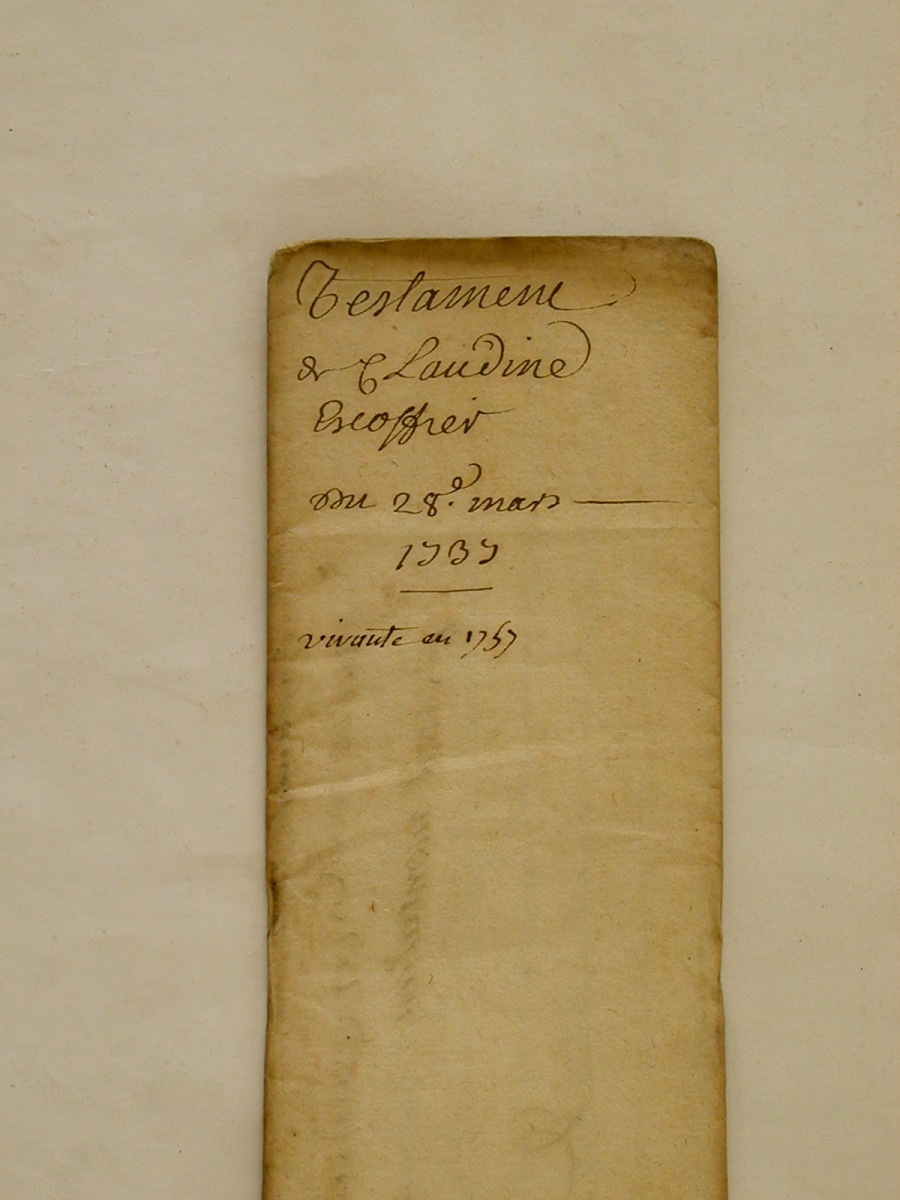 Testament
de Claudine
Escoffier
Du 28e. mars
1737
vivante en 1757